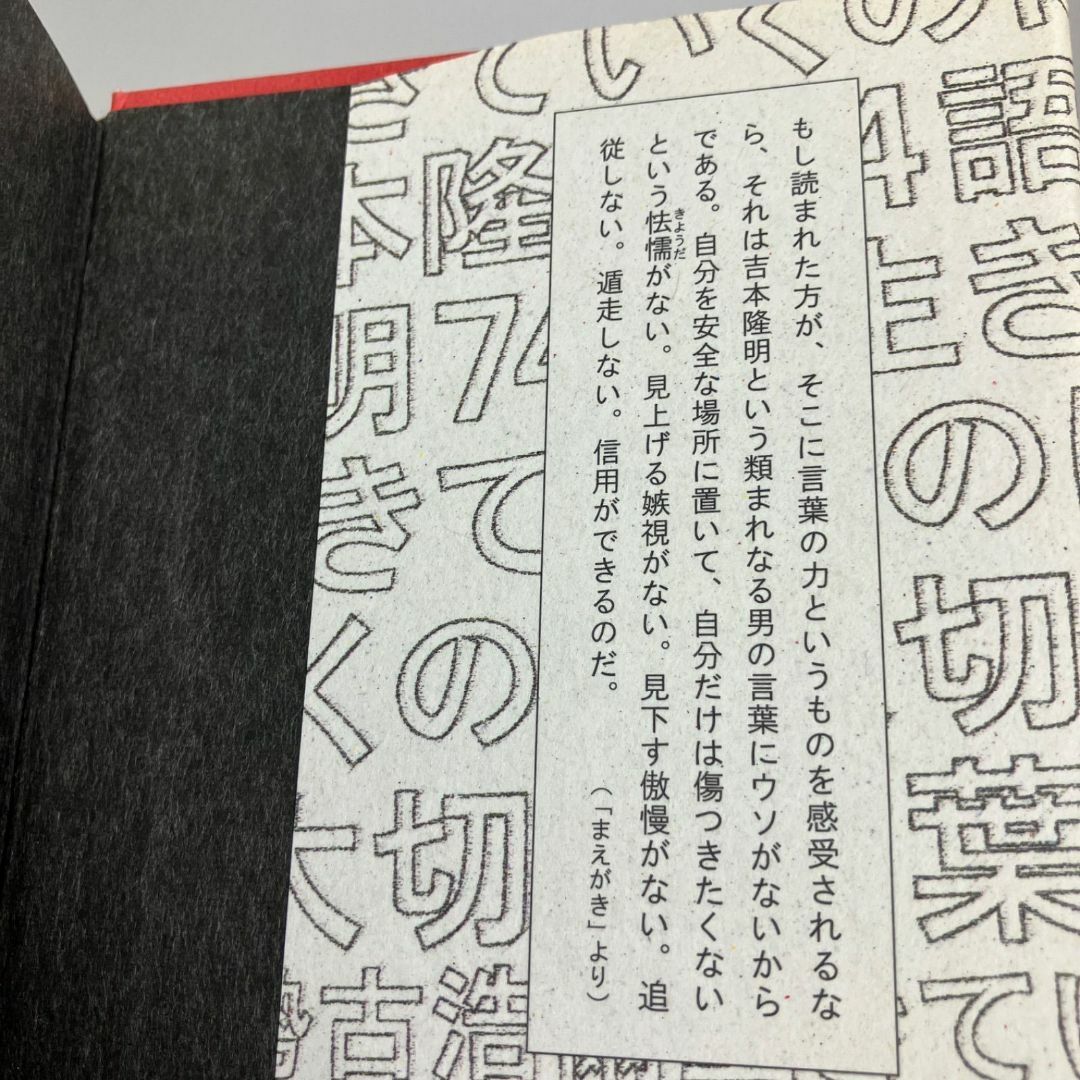 もし読まれた方が、そこに言葉の力というものを感受されるな
ら、それは吉本隆明という類まれなる男の言葉にウソがないから
である。自分を安全な場所に置いて、自分だけは傷つきたくない
という怯懦がない。見上げる嫉視がない。見下す傲慢がない。追
従しない。遁走しない。信用ができるのだ。
きようだ
（「まえがき」より）
語き
の切
葉
てい
ていくの
隆74て
の切
本明き
く大
古浩